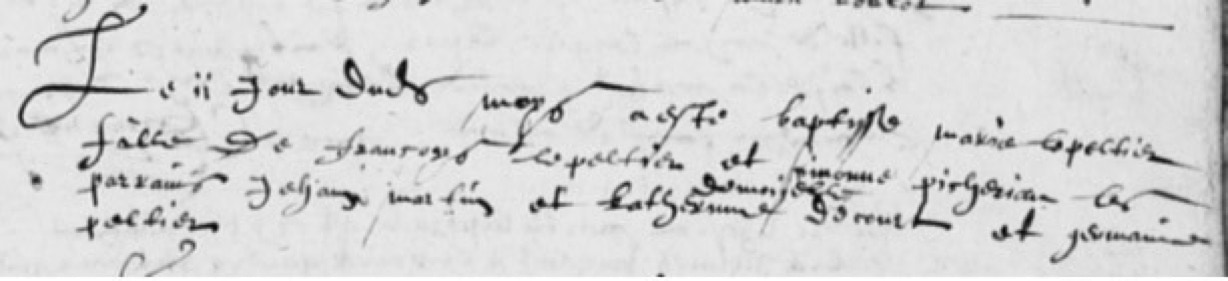 Le ii Jour dudt moys a este baptisse marie lepeltier
fille de francoys lepeltier et simonne picherian les
parrains Jehan martin et katherinne demoiselle decourt et germainne
peltier